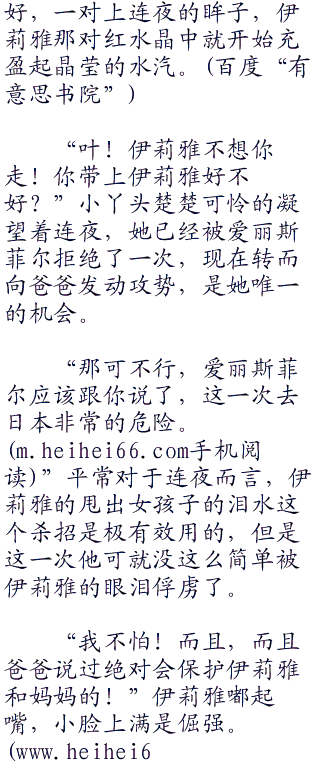 好，一对上连夜的眸子，伊
莉雅那对红水晶中就开始充
盈起晶莹的水汽。(百度“有
意思书院”)
“叶！伊莉雅不想你
走！你带上伊莉雅好不
好？”小丫头楚楚可怜的凝
望着连夜，她已经被爱丽斯
菲尔拒绝了一次，现在转而
向爸爸发动攻势，是她唯一
的机会。
“那可不行，爱丽斯菲
尔应该跟你说了，这一次去
日本非常的危险。
(m.heihei66.com手机阅
读)”平常对于连夜而言，伊
莉雅的甩出女孩子的泪水这
个杀招是极有效用的，但是
这一次他可就没这么简单被
伊莉雅的眼泪俘虏了。
“我不怕！而且，而且
爸爸说过绝对会保护伊莉雅
和妈妈的！”伊莉雅嘟起
嘴，小脸上满是倔强。
(www.heihei6